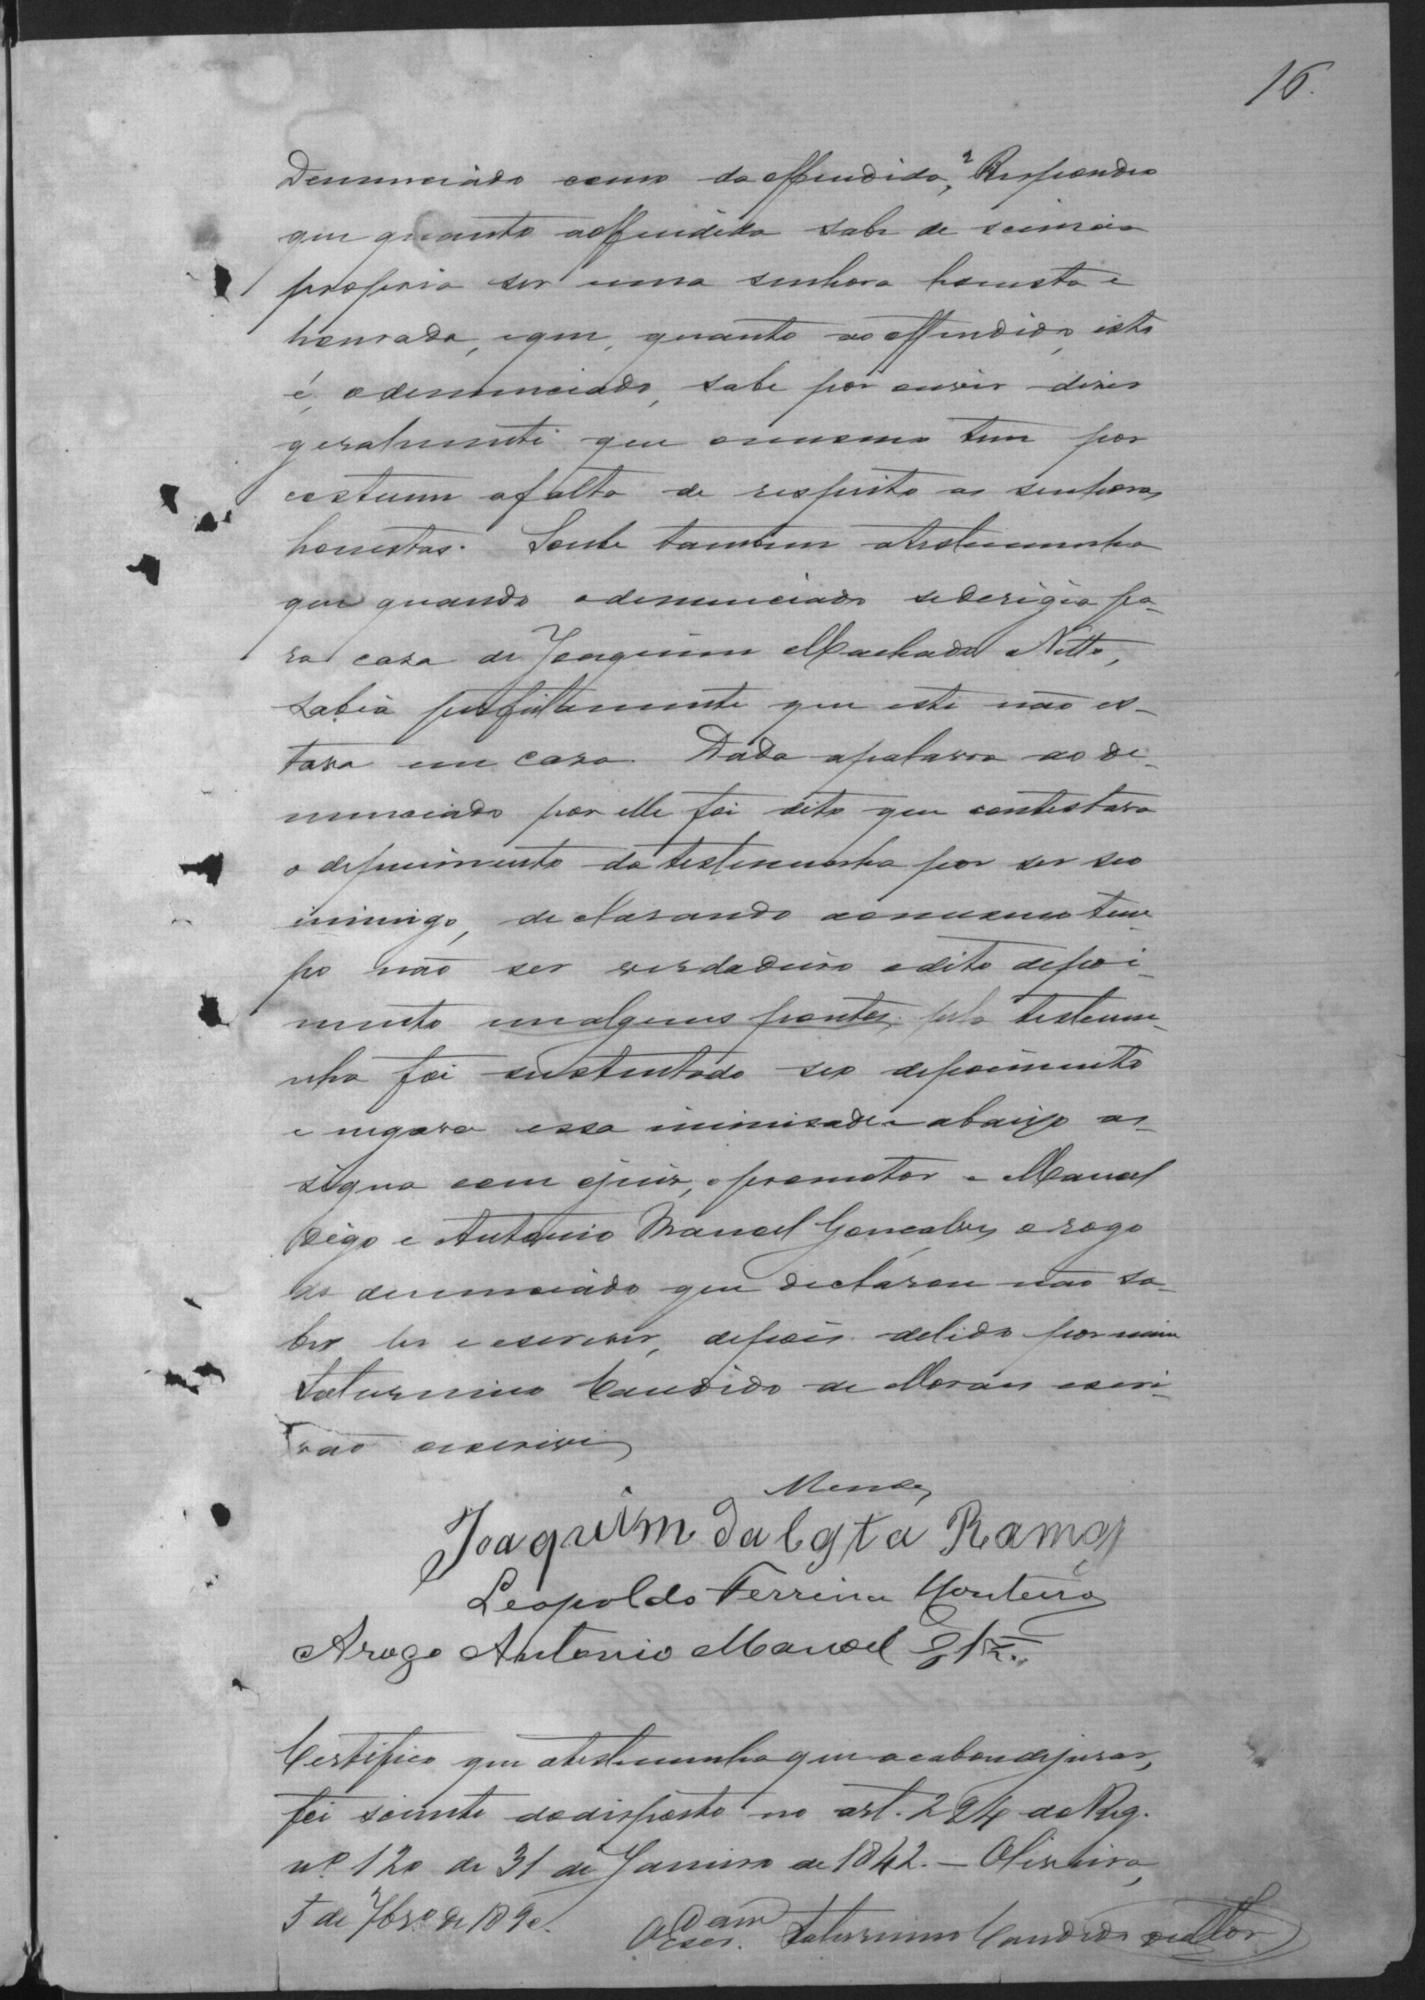 16.
Denunciado como da offendida? Respondeu
que quanto a offendida sabe de sciencia
propria ser uma senhora honesta e
honrada, e que, quanto ao offendido, isto
é, o denunciado, sabe por ouvir diser
geralmente que o mesmo tem por
costume a falta de respeito as senhoras
honestas. Soube tambem a testemunha
que quando o denunciado se derigio pa-
ra casa de Joaquim Machado Netto,
sabia perfeitamente que este não es-
tava em casa. Dada a palavra ao de-
nunciado por elle foi dito que contestava
o depoimento da testemunha por ser seo
inimigo, declarando ao mesmo tem-
po não ser verdadeiro o dito depoi-
mento em alguns pontos, pela testemu-
nha foi sustentado seo depoimento
e negava essa inimisade e abaixo as-
signa com o juis, o promotor e Manoel
digo e Antonio Manoel Gonçalves a rogo
do denunciado que declarou não sa-
ber ler e escrever, depois de lido por mim
Saturnino Candido de Moraes escri-
vão o escrivi
Mendes
Joaquim da Costa Ramos
Leopoldo Ferreira Monteiro
Arogo Antonio Manoel Glz.
Certifico que a testemunha que acabou de jurar,
foi sciente do disposto no art. 294 do Reg.
nº 120 de 31 de Janeiro de 1842. — Oliveira,
5 de 7bro de 1890.
O Escr. Saturnino Candido de Mor